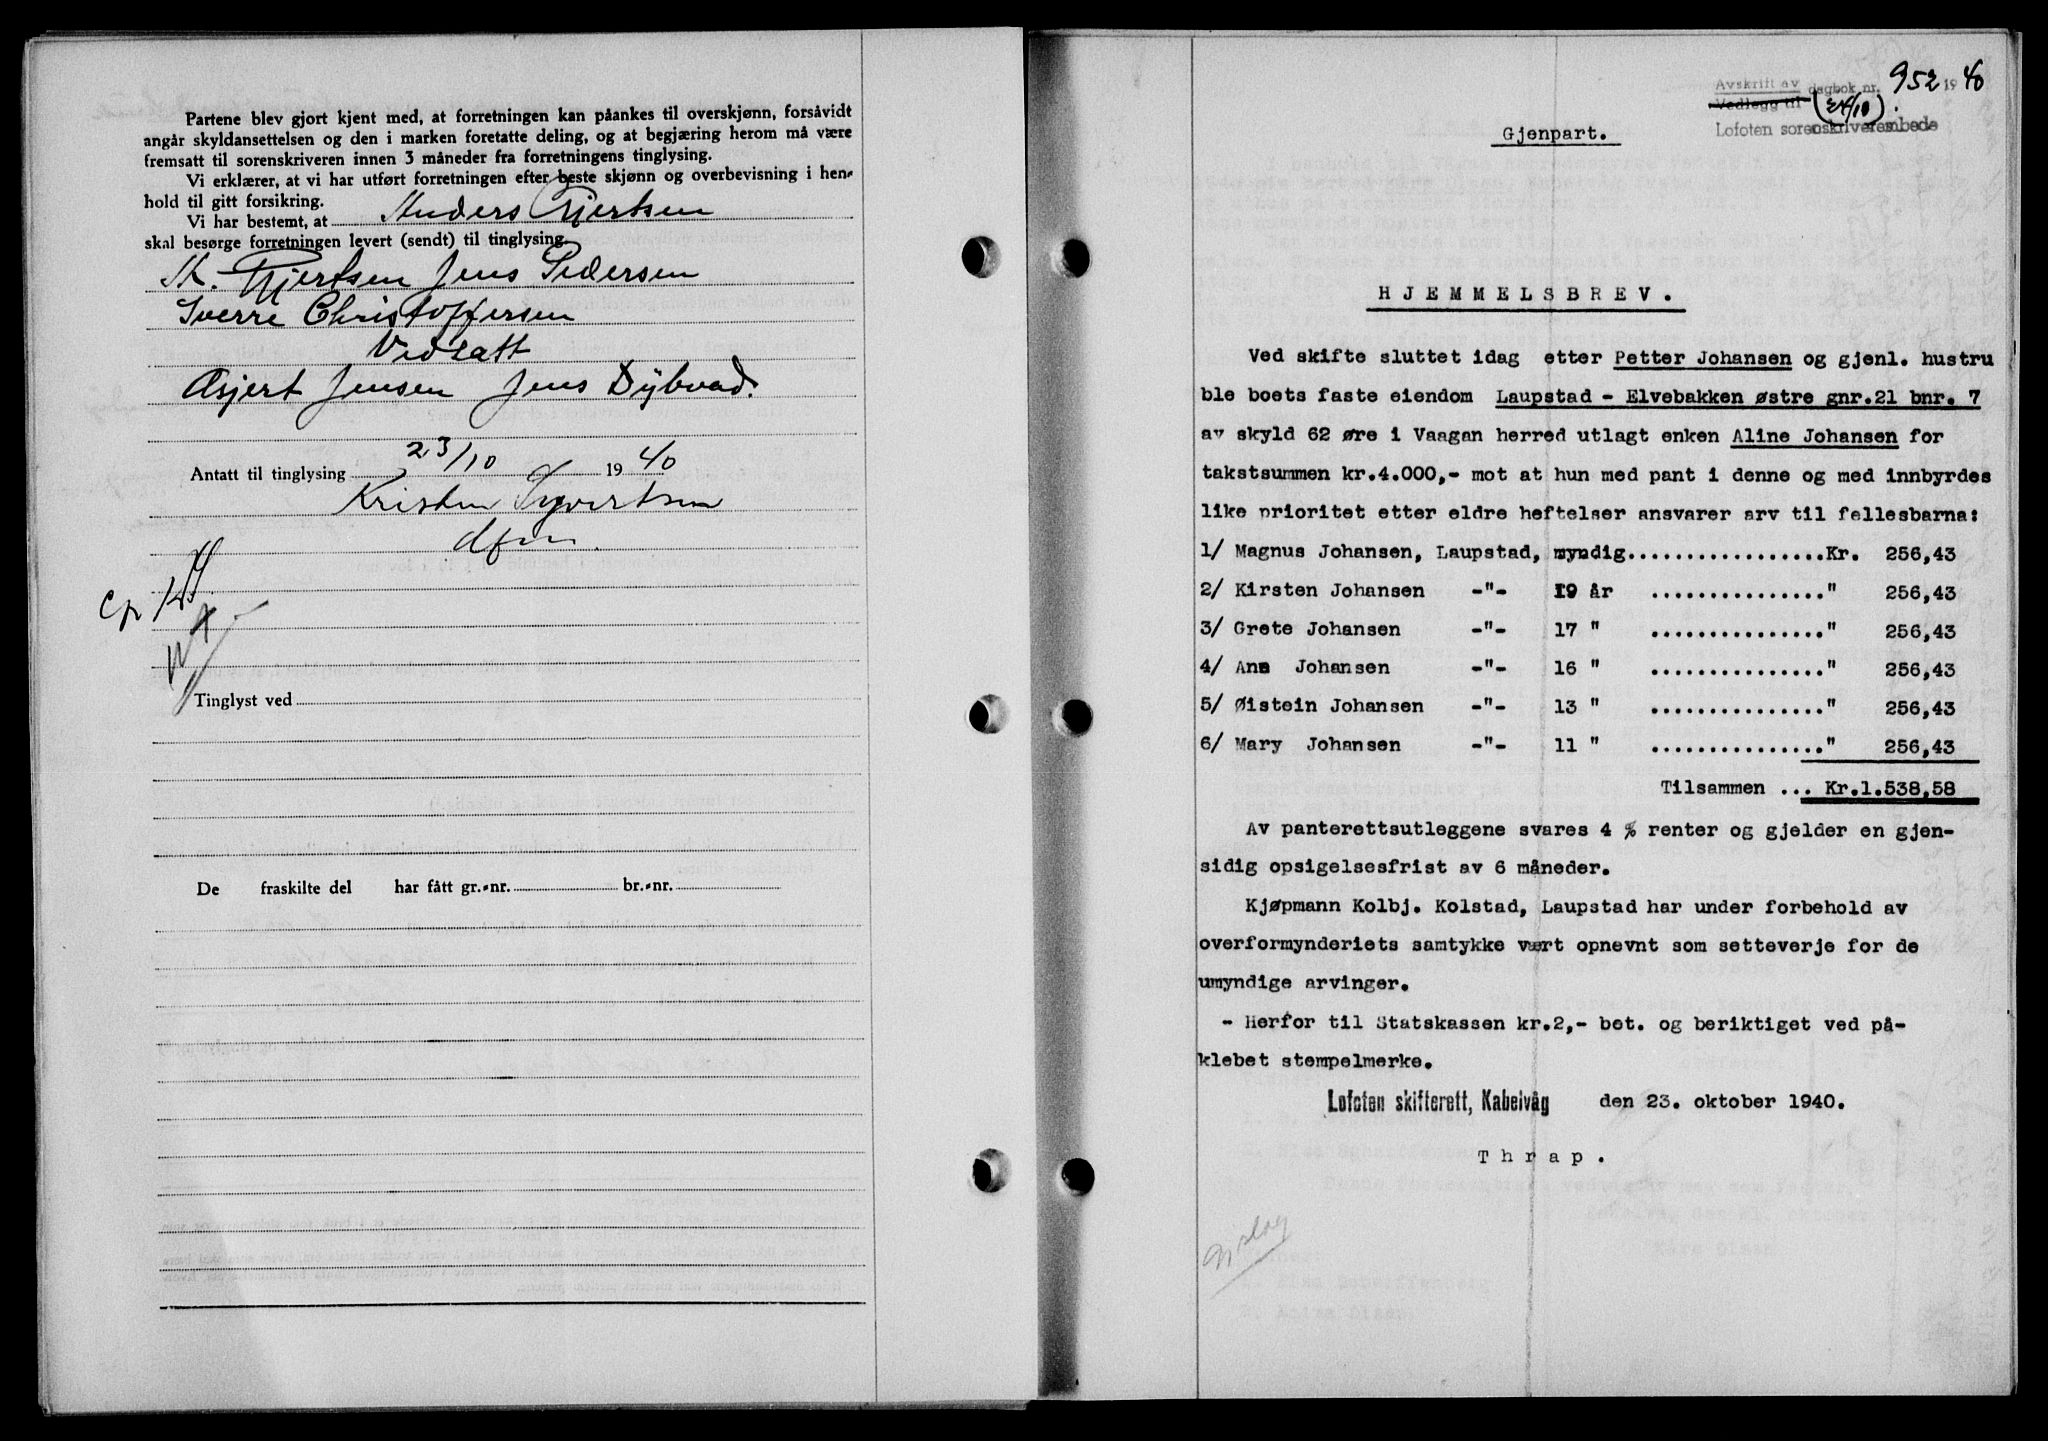 Partene blev gjort kjent med, at forretningen kan påankes til overskjønn, forsåvidt
angår skyldansettelsen og den i marken foretatte deling, og at begjæring herom må være
fremsatt til sorenskriveren innen 3 måneder fra forretningens tinglysing.
Vi erklærer, at vi har utført forretningen efter beste skjønn og overbevisning i hen-
hold til gitt forsikring.
Vi har bestemt, at Anders Gjertsen
skal besørge forretningen levert (sendt) til tinglysing.
A. Gjertsen Jens Pedersen
Sverre Christoffersen
Vedtatt
Asjert Jensen Jens Dybvad.
Antatt til tinglysing 23/10 1940
Kristen Syvertsen
Tinglyst ved
De fraskilte del har fått gr.-nr. br.-nr.
Avskrift av
Vedlegg til dagbok nr. 952 1940
(24/10).
Lofoten sorenskriverembede
Gjenpart.
HJEMMELSBREV.
Ved skifte sluttet idag etter Petter Johansen og gjenl. hustru
ble boets faste eiendom Laupstad - Elvebakken østre gnr.21 bnr. 7
av skyld 62 øre i Vaagan herred utlagt enken Aline Johansen for
takstsummen kr.4.000,- mot at hun med pant i denne og med innbyrdes
like prioritet etter eldre heftelser ansvarer arv til fellesbarna:
1/ Magnus Johansen, Laupstad, myndig..................Kr. 256,43
2/ Kirsten Johansen -"- 19 år ..............." 256,43
3/ Grete Johansen -"- 17 " ..............." 256,43
4/ Ana Johansen -"- 16 " ..............." 256,43
5/ Øistein Johansen -"- 13 " ..............." 256,43
6/ Mary Johansen -"- 11 " ..............." 256,43
Tilsammen ... Kr.1.538,58
Av panterettsutleggene svares 4 % renter og gjelder en gjen-
sidig opsigelsesfrist av 6 måneder.
Kjøpmann Kolbj. Kolstad, Laupstad har under forbehold av
overformynderiets samtykke vært opnevnt som setteverje for de
umyndige arvinger.
- Herfor til Statskassen kr.2,- bet. og beriktiget ved på-
klebet stempelmerke.
Lofoten skifterett, Kabelvåg den 23. oktober 1940.
Thrap.